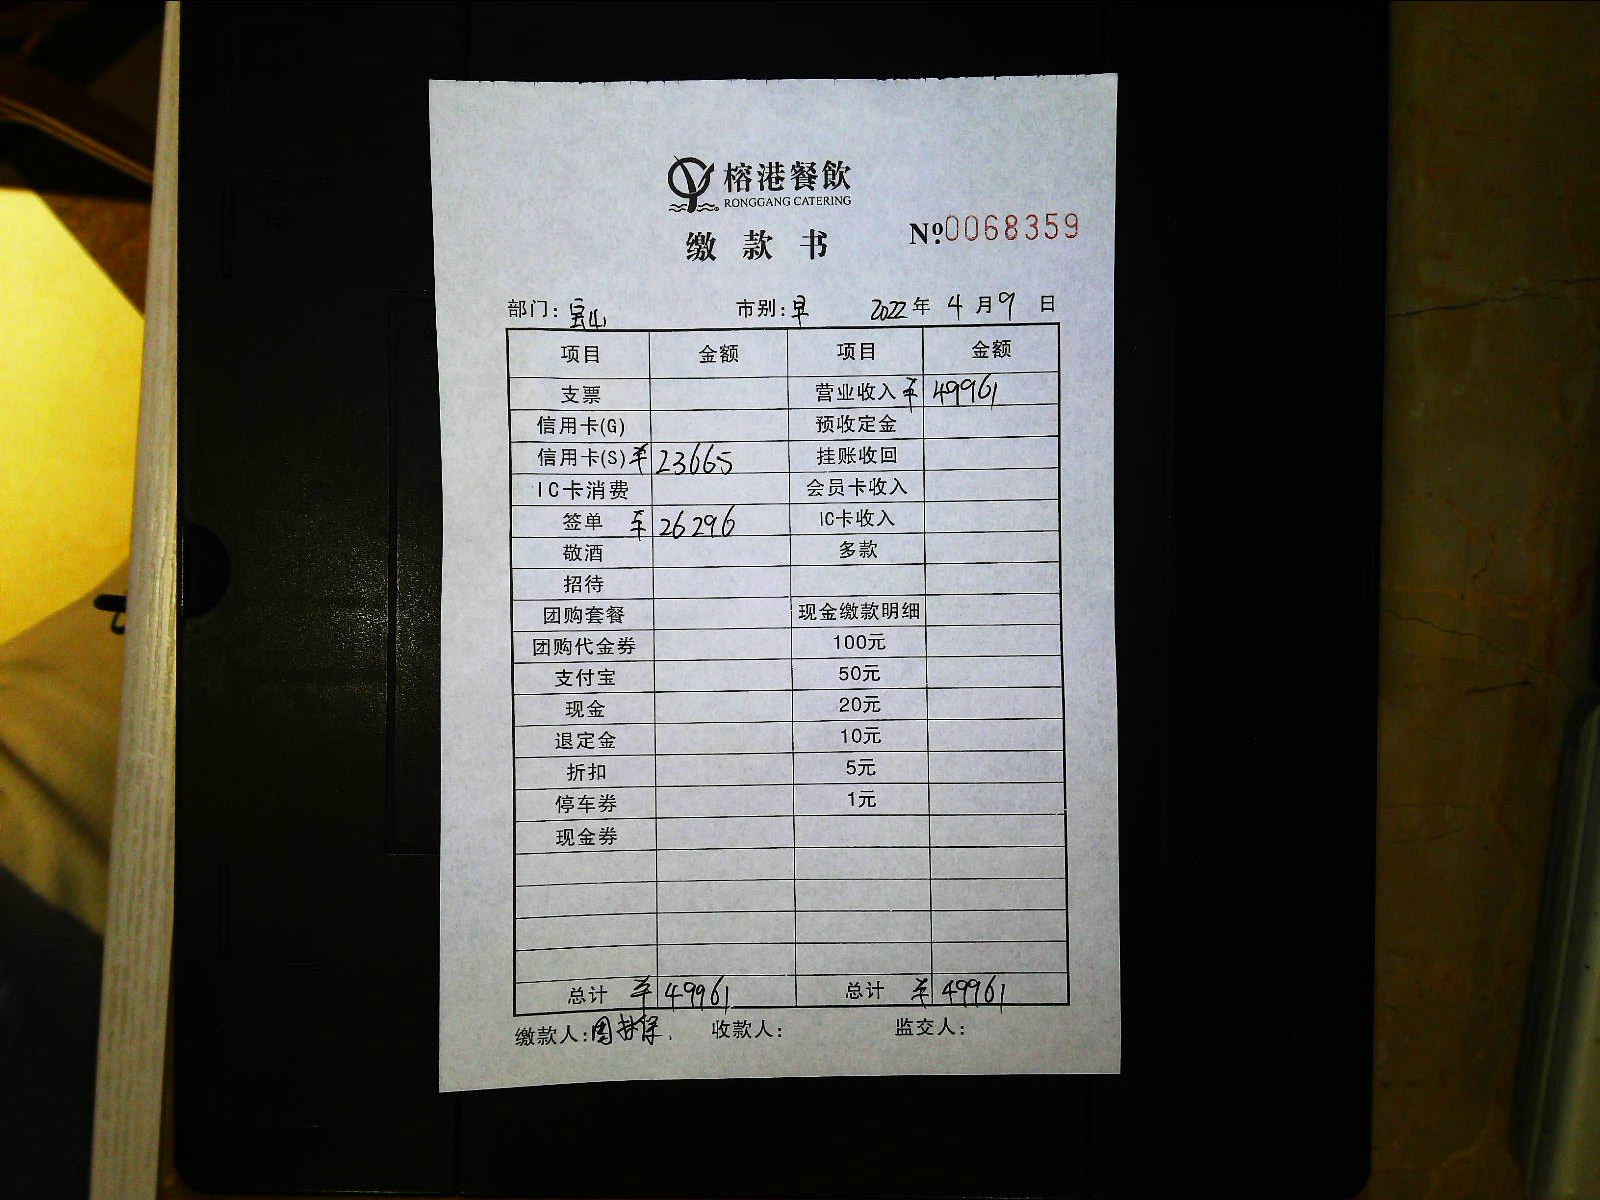 榕港餐飲
RONGGANG CATERING
缴款书 №0068359
部门: 宝山 市别: 早 2022年 4月9日
项目 金额 项目 金额
支票 营业收入 ¥ 49961
信用卡(G) 预收定金
信用卡(S) ¥ 23665 挂账收回
IC卡消费 会员卡收入
签单 ¥ 26296 IC卡收入
敬酒 多款
招待
团购套餐 现金缴款明细
团购代金券 100元
支付宝 50元
现金 20元
退定金 10元
折扣 5元
停车券 1元
现金券
总计 ¥ 49961 总计 ¥ 49961
缴款人: 收款人: 监交人: